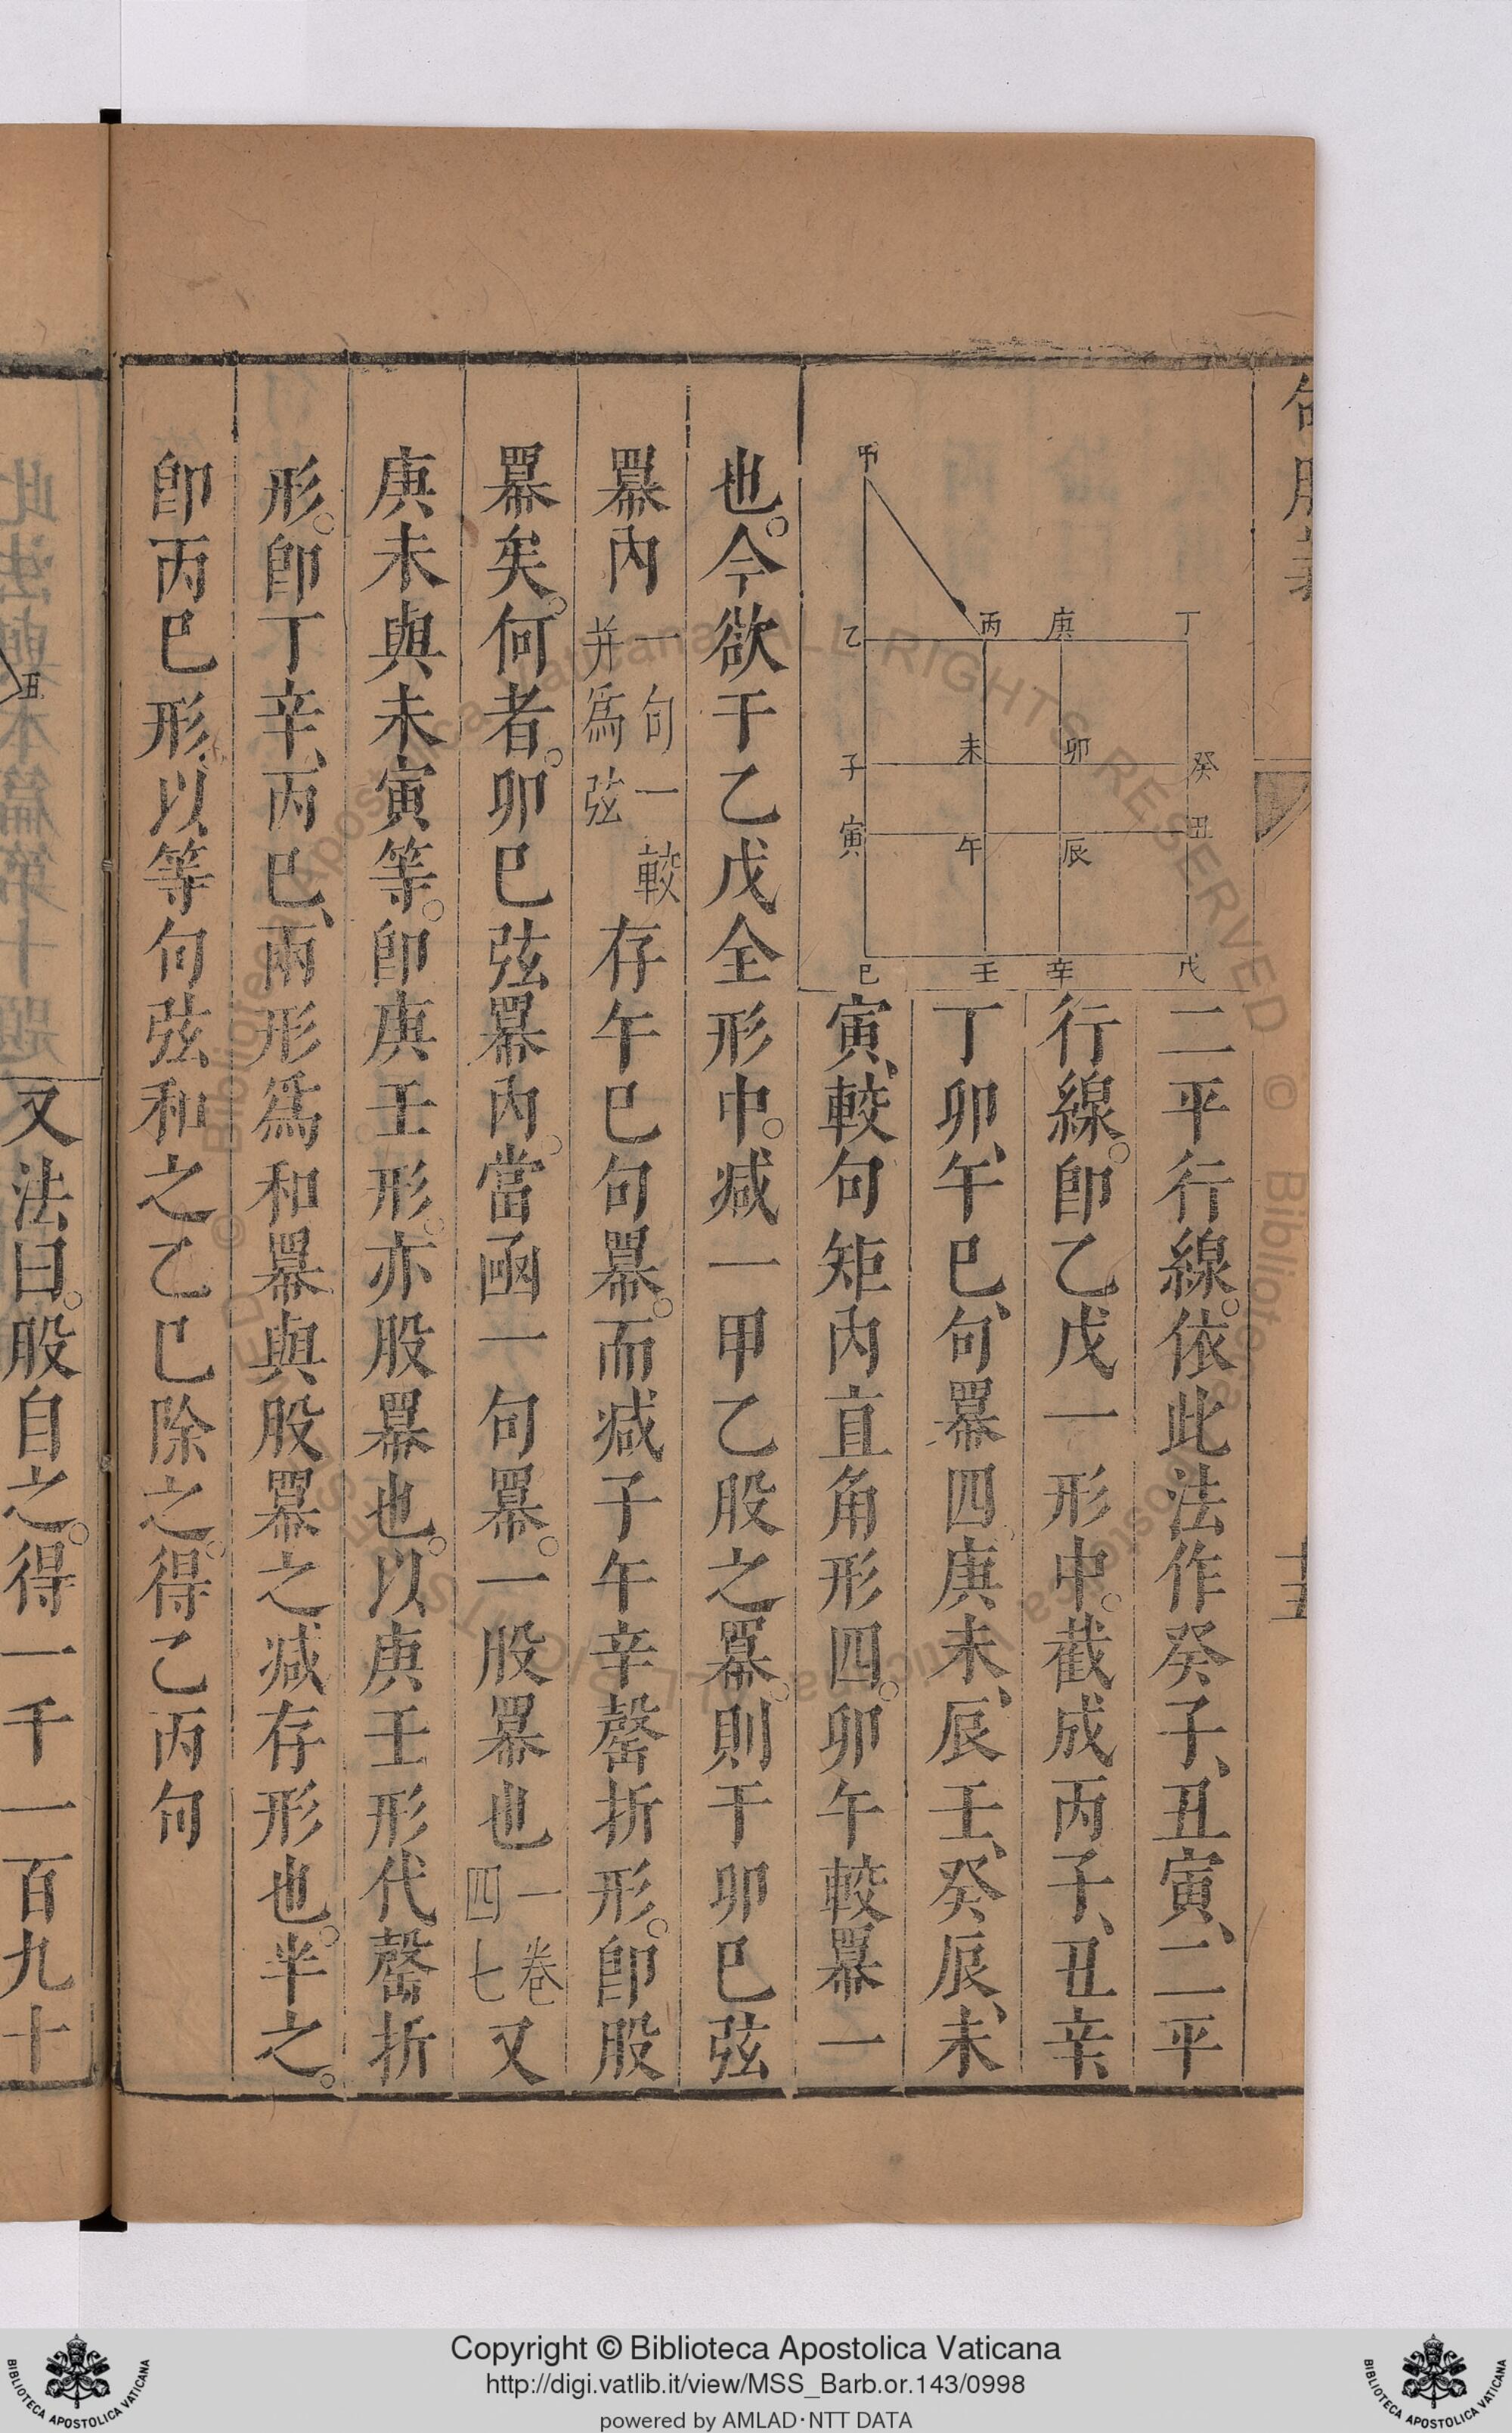 二平行線。依此法作癸子、丑寅、二平
行線。卽乙戊一形中。截成丙子、丑辛、
丁卯、午巳、句羃四。庚未、辰壬、癸辰、未
寅、較句矩內直角形四。卯午較羃一
也。今欲于乙戊全形中。减一甲乙股之羃。則于卯巳弦
羃內一句一較并爲弦存午巳句羃。而减子午辛罄折形。卽股
羃矣。何者。卯巳弦羃內。當函一句羃。一股羃也一卷四七又
庚未與未寅等。卽庚壬形。亦股羃也。以庚壬形代罄折
形。卽丁辛、丙巳、兩形爲和羃與股羃之减存形也。半之。
卽丙巳形、以等句弦和之乙巳除之。得乙丙句
甲
乙
丙
庚
丁
子
未
卯
癸
寅
午
辰
丑
巳
壬
辛
戊
十五
又法曰。股自之。得一千一百九十
Copyright © Biblioteca Apostolica Vaticana
http://digi.vatlib.it/view/MSS_Barb.or.143/0998
powered by AMLAD·NTT DATA
BIBLIOTECA APOSTOLICA VATICANA
BIBLIOTECA APOSTOLICA VATICANA